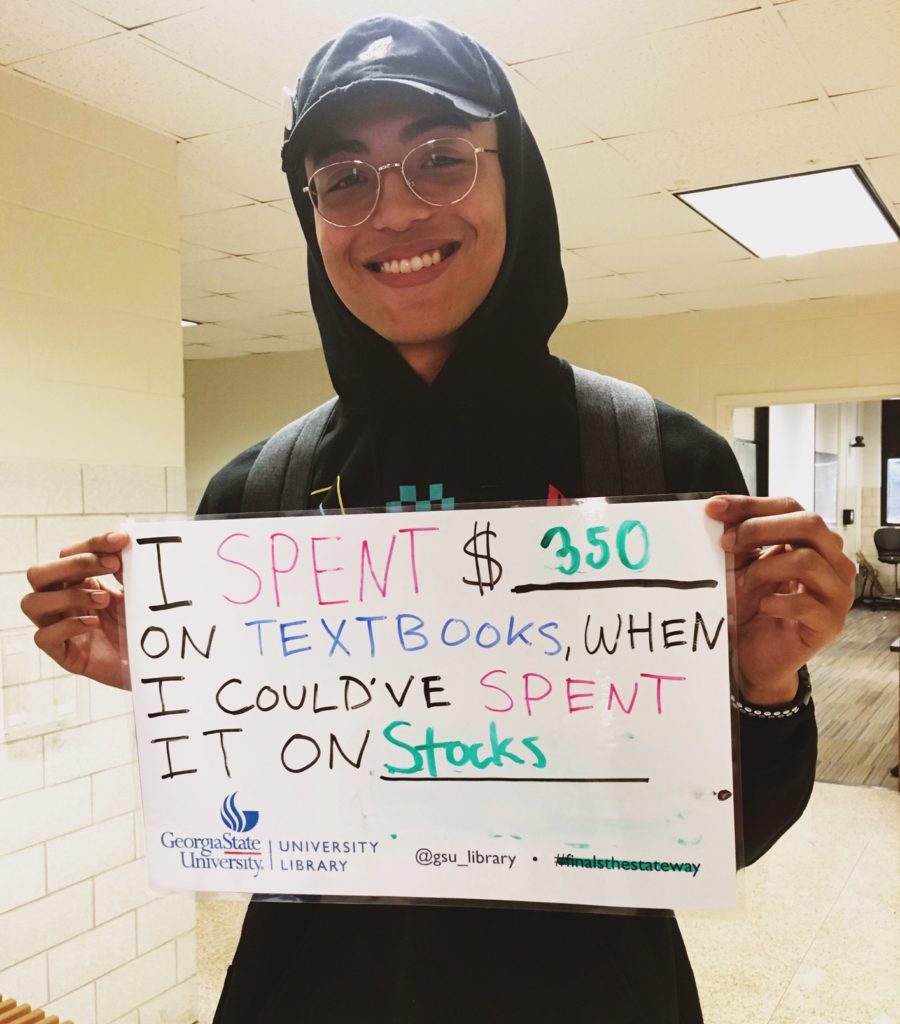 I SPENT $ 350
ON TEXTBOOKS, WHEN
I COULD'VE SPENT
IT ON Stocks
GeorgiaState
University.
UNIVERSITY
LIBRARY
@gsu_library • #finalsthestateway